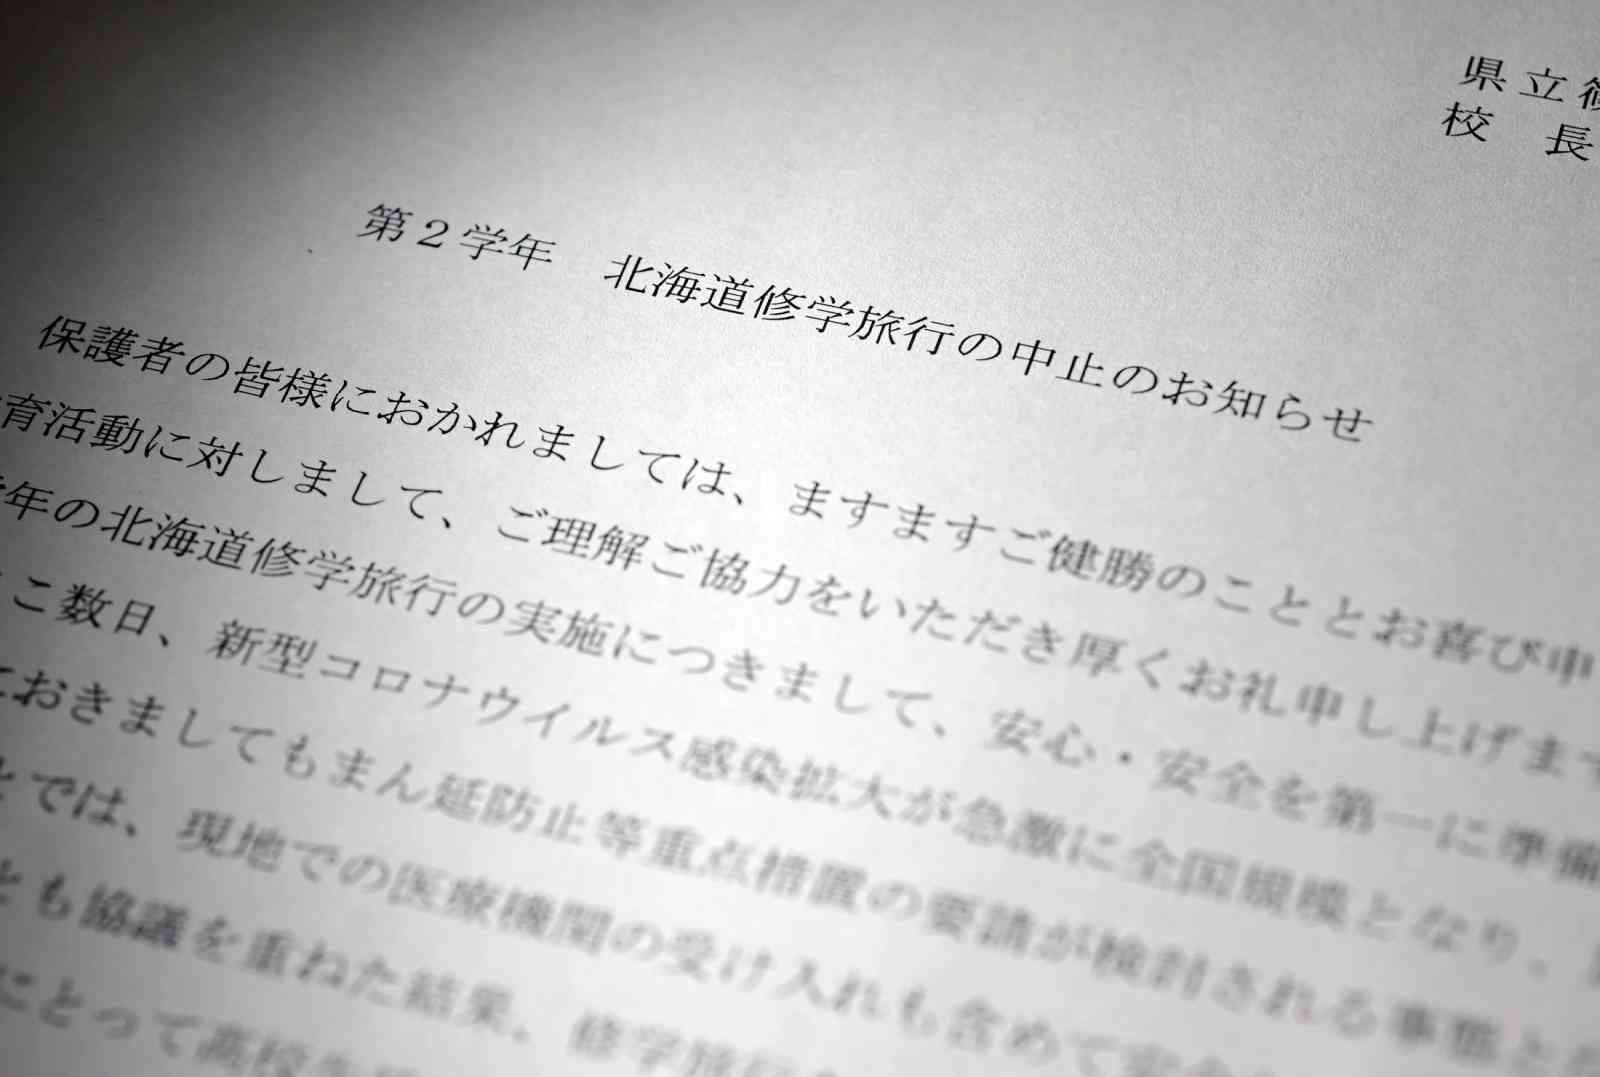 県立篠
校　長
第２学年　北海道修学旅行の中止のお知らせ
保護者の皆様におかれましては、ますますご健勝のこととお喜び申
育活動に対しまして、ご理解ご協力をいただき厚くお礼申し上げます
年の北海道修学旅行の実施につきまして、安心・安全を第一に準備
こ数日、新型コロナウイルス感染拡大が急激に全国規模となり、
ておきましてもまん延防止等重点措置の要請が検討される事態と
とでは、現地での医療機関の受け入れも含めて安全
とも協議を重ねた結果、修学旅行
にとって高校生